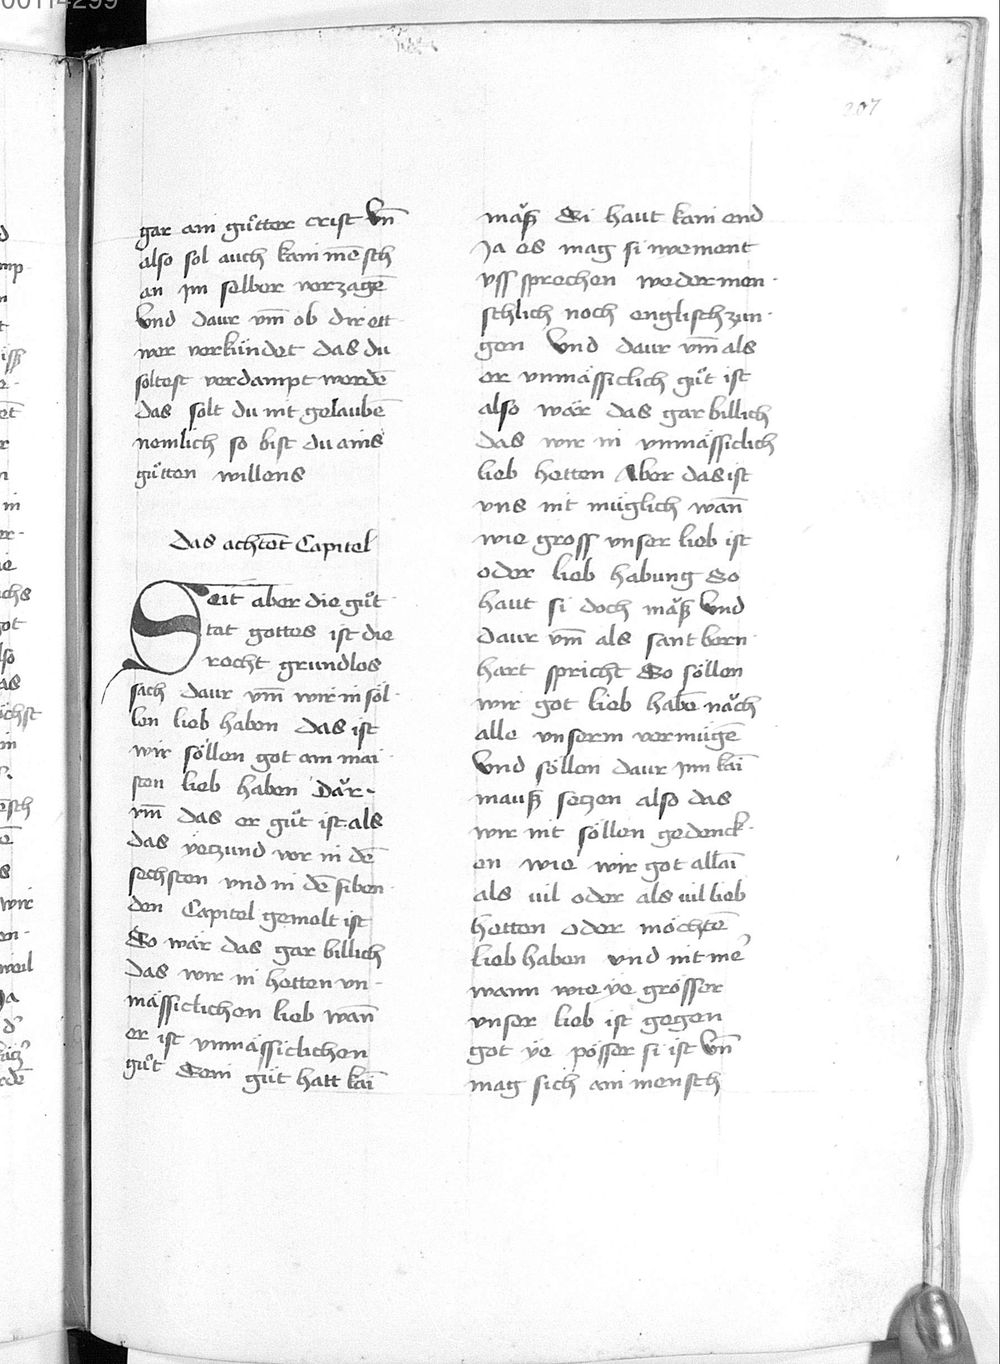 207
gar ain guͦtter crist Vn̄
also sol auch kain mēsch
an jm selber verzagē
Vnd daur vm̄ ob dir ett
wer verkündet das du
söltest verdampt werdē
das solt du nit gelaubē
nemlich so bist du ains
guͦtten willens
Das achtēt Capitel
Seit aber die guͦt
tat gottes ist die
recht grundlos
sach daur vm̄ wir in söl
len lieb haben das ist
wir söllen got am mai
sten lieb haben Dăr-
vm̄ das er guͦt ist als
das yetzund vor in dē
sechsten vnd in dē siben
den Capitel gemelt ist
So wär das gar billich
das wir in hetten vn-
mässiclichen lieb wan̄
er ist vnmässiclichen
guͦt Sein güt hatt kaī
mäß Si haut kain end
Ja es mag si niement
vss sprechen weder men
schlich noch englisch zun
gen Vnd daur vm̄ als
er vnmässiclich guͦt ist
also wär das gar billich
das wir in vnmässiclich
lieb hetten Aber das ist
vns nit müglich wan̄
wie gross vnser lieb ist
oder lieb habung So
haut si doch măß Vnd
daur vm̄ als sant bern
hart spricht So söllen
wir got lieb habē năch
alle vnserm vermügē
Vnd söllen daur jnn kaī
mauß setzen also das
wir nit söllen gedenck
en wie wir got allaī
als vil oder als vil lieb
hetten oder möchtē
lieb haben vnd nit me
wann wie ye grösser
vnser lieb ist gegen
got ye pösser si ist Vn̄
mag sich ain mensch